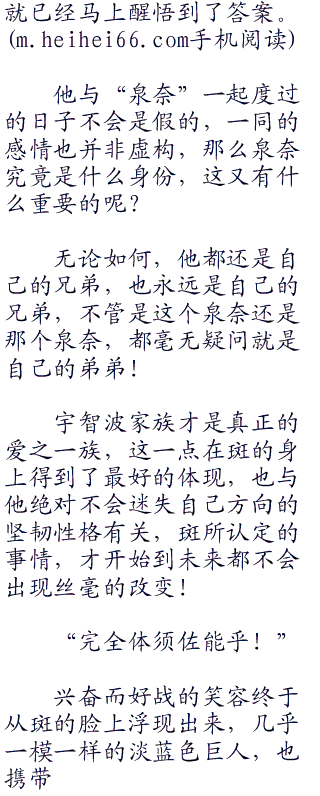 就已经马上醒悟到了答案。
(m.heihei66.com手机阅读)
他与“泉奈”一起度过
的日子不会是假的，一同的
感情也并非虚构，那么泉奈
究竟是什么身份，这又有什
么重要的呢？
无论如何，他都还是自
己的兄弟，也永远是自己的
兄弟，不管是这个泉奈还是
那个泉奈，都毫无疑问就是
自己的弟弟！
宇智波家族才是真正的
爱之一族，这一点在斑的身
上得到了最好的体现，也与
他绝对不会迷失自己方向的
坚韧性格有关，斑所认定的
事情，才开始到未来都不会
出现丝毫的改变！
“完全体须佐能乎！”
兴奋而好战的笑容终于
从斑的脸上浮现出来，几乎
一模一样的淡蓝色巨人，也
携带